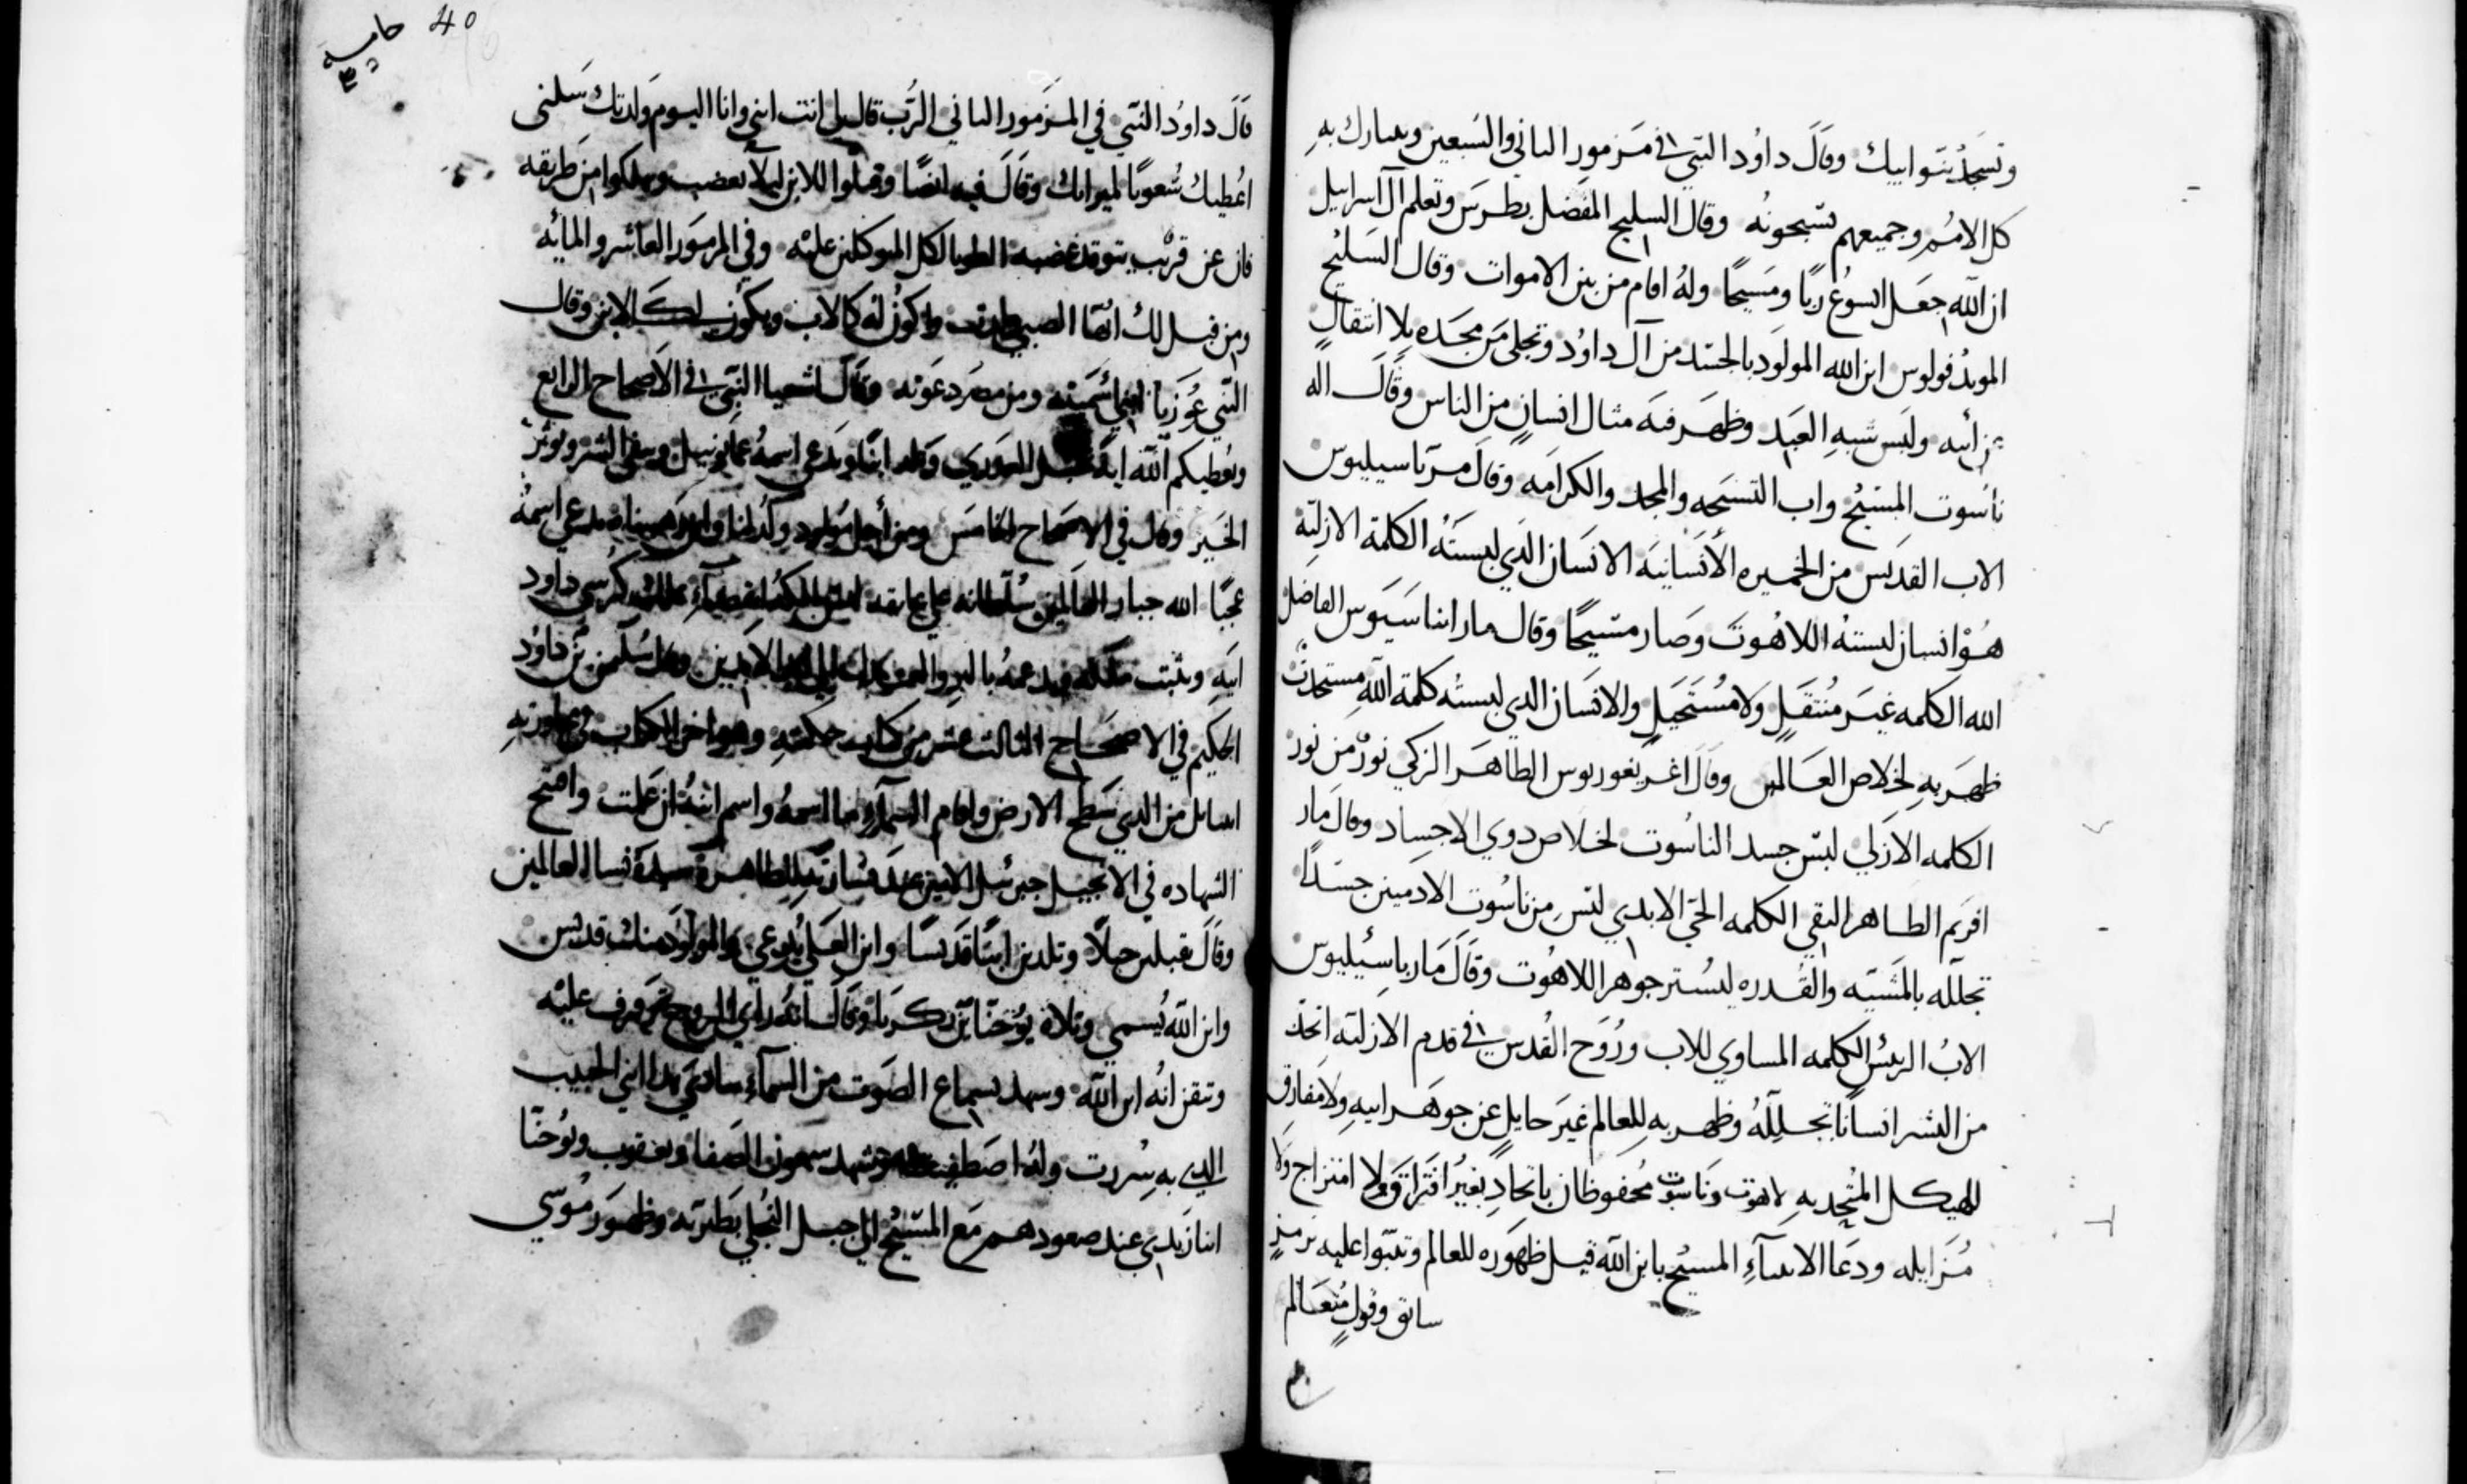 وتسجد بنوا ابيك وقال داود النبي في مزمور الثاني والسبعين ويتبارك به
كل الامم وجميعهم تسبحونه وقال السليح المفضل بطرس وتعلم آل اسرايل
ان الله جعل ايسوع ربا ومسيحا وله اقام من بين الاموات وقال السليح
المويد فولوس ابن الله المولود بالجسد من آل داود وتجلي من مجده بلا انتقال
ولبس شبه العبد وظهر فيه مثال انسان من الناس وقال اله
ناسوت المسيح واب التسبحه والمجد والكرامه وقال مر باسيليوس
الاب القديس من الخميره الأنسانيه الانسان الذي لبسته الكلمة الازلية
هو انسان لبسته اللاهوت وصار مسيحا وقال مار اتناسيوس الفاضل
الله الكلمه غير منتقل ولا مستحيل والانسان الذي لبسته كلمة الله مستحدث
ظهر به لخلاص العالمين وقال اغريغوريوس الطاهر الزكي نور من نور
الكلمه الازلي لبس جسد الناسوت لخلاص ذوي الاجساد وقال مار
افريم الطاهر النقي الكلمه الحي الابدي لبس من ناسوت الادميين جسدا
تجلله بالمشيه والقدره ليستر جوهر اللاهوت وقال مار باسيليوس
الاب الريس الكلمه المساوي للاب وروح القدس في قدم الازليه اتخذ
من البشر انسانا تجلله وظهر به للعالم غير حايل عن جوهر ابيه ولا مفارق
للهيكل المتحد به لاهوت وناسوت محفوظان باتحاد بغير افتراق ولا امتزاج ولا
مزايله ودعا الانبيآء المسيح بابن الله قبل ظهوره للعالم وتنبوا عليه برمز
سابق وقول متعالم
40
قال داود النبي في المزمور الثاني الرب قال لي انت ابني وانا اليوم ولدتك سلني
اعطيك شعوبا لميراثك وقال فيه ايضا وقبلوا الابن ليلا يغضب وتهلكوا من طريقه
فان عن قريب يتوقد غضبه الطوبا لكل المتوكلين عليه وفي المزمور العاشر والمايه
ومن قبل لك ايها الصبي ولدت واكون له كالاب ويكون لك الابن وقال
النبي عوزيا ابني سميته ومن مصر دعوته وقال اشعيا النبي في الاصحاح الرابع
ويعطيكم الله اية وتلد ابنا ويدعي اسمه عمانوييل
الخير وقال في الاصحاح الخامس ومن أجل مولود ولد لنا وابن وهبناه يدعي اسمه
عجبا الله جبار العالمين سلطانه علي عاتقه كرسي داود
ابيه ويثبت بالبر وقال سليمن بن داود
الحكيم في الاصحاح الثالث عشر من كتاب حكمته وهو اخر الكتاب
اسايل من الذي سطح الارض واقام السمآء وما اسمه واسم ابنه ان علمت وافتتح
الشهاده في الانجيل جبرئيل الامين عند بشارته للطاهرة سيدة نسا العالمين
وقال تقبلين حبلا وتلدين ابنا قديسا وابن العلي يدعي والمولود منك قديس
وابن الله يسمي وتلاه يوحنا بن زكريا وقال انه راي الروح ترفرف عليه
وتيقن انه ابن الله وشهد بسماع الصوت من السمآء هذا ابني الحبيب
الذي به سررت وله اصطفيت وشهد سمعون الصفا ويعقوب ويوحنا
ابنا زبدي عند صعودهم مع المسيح الي جبل التجلي وظهور موسي